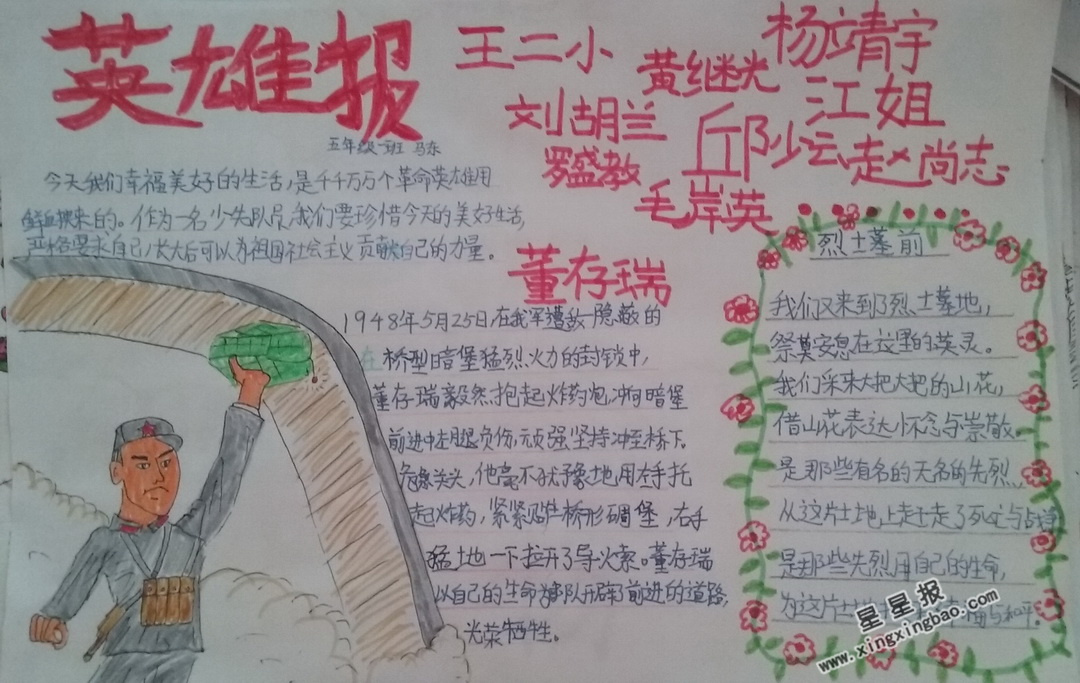 英雄报
五年级一班 马东
王二小
杨靖宇
黄继光
江姐
刘胡兰
邱少云
赵尚志
罗盛教
毛岸英
今天我们幸福美好的生活,是千千万万个革命英雄用
鲜血换来的。作为一名少先队员,我们要珍惜今天的美好生活,
严格要求自己,长大后可以为祖国社会主义贡献自己的力量。
董存瑞
1948年5月25日,在我军遭敌隐蔽的
在桥型暗堡猛烈火力的封锁中,
董存瑞毅然抱起炸药包,冲向暗堡
前进中左腿负伤,顽强坚持冲至桥下。
危急关头,他毫不犹豫地用左手托
起炸药,紧紧贴牢桥形碉堡,右手
猛地一下拉开了导火索。董存瑞
以自己的生命为部队开辟了前进的道路,
光荣牺牲。
烈士墓前
我们又来到了烈士墓地,
祭奠安息在这里的英灵。
我们采来大把大把的山花,
借山花表达怀念与崇敬。
是那些有名的无名的先烈,
从这片土地上赶走了死亡与战争
是那些先烈用自己的生命,
为这片土地
与和平
星星报
www.xingxingbao.com